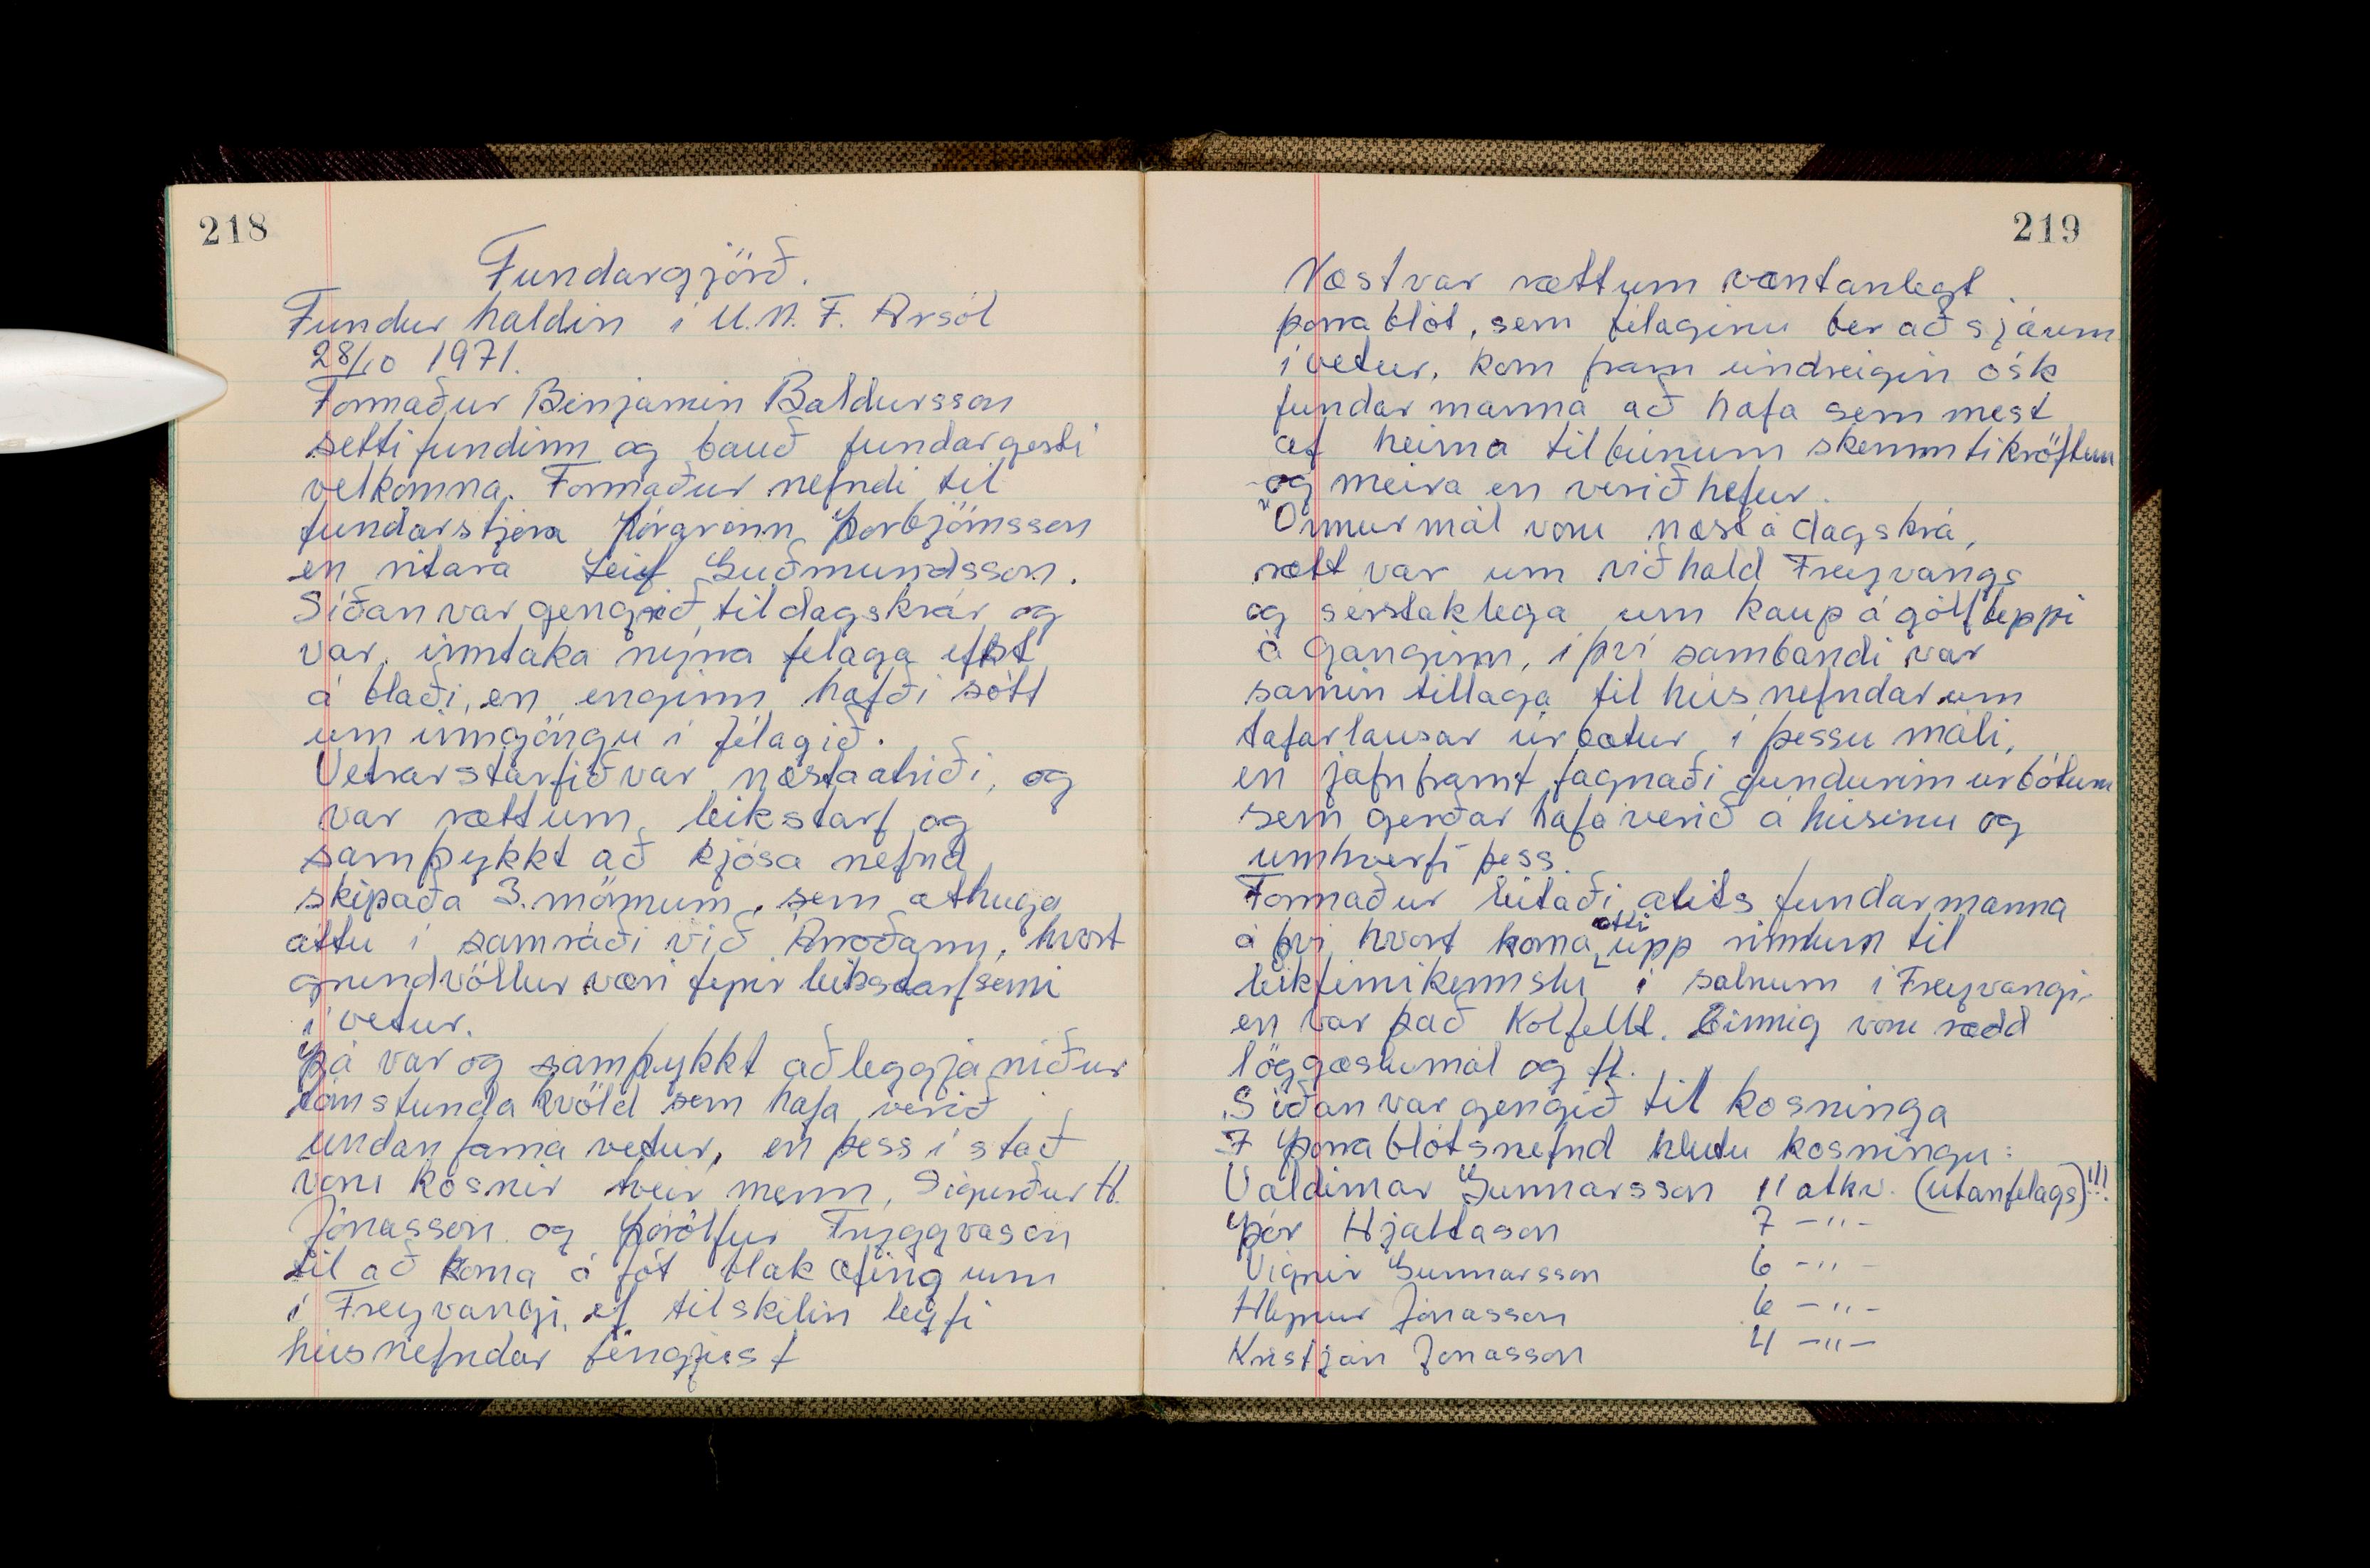 218
Fundargjörð.
Fundur haldin í U.M.F. Ársól
28/10 1971.
Formaður Benjamín Baldursson
setti fundinn og bauð fundargesti
velkomna. Formaður nefndi til
fundarstjóra Þórgrinn Þorbjörnsson
en ritara Leif Guðmundsson.
Síðan var gengið til dagskrár og
var inntaka nýrra félaga efst
á blaði, en enginn hafði sótt
um inngöngu í félagið.
Vetrarstarfið var næsta atriði, og
var rætt um leikstarf og
samþykkt að kjósa nefnd
skipaða 3. mönnum, sem athuga
áttu í samráði við Árroðann, hvort
grundvöllur væri fyrir leikstarfsemi
í vetur.
Þá var og samþykkt að leggja niður
tómstunda kvöld sem hafa verið
undanfarna vetur, en þess í stað
voru kosnir tveir menn, Sigurður H.
Jónasson og Þórólfur Tryggvason
til að koma á fót blak æfingum
í Freyvangi, ef tilskilin leyfi
húsnefndar fengjust
219
Næst var rætt um væntanlegt
þorrablót, sem félaginu ber að sjá um
í vetur, kom fram eindreigin ósk
fundarmanna að hafa sem mest
af heima tilbúnum skemmtikröftum
og meira en verið hefur.
Önnur mál voru næst á dagskrá,
rætt var um viðhald Freyvangs
og sérstaklega um kaup á gólfteppi
á ganginn, í því sambandi var
samin tillaga til húsnefndar um
tafarlausar úrbætur í þessu máli,
en jafnframt fagnaði fundurinn úrbótum
sem gerðar hafa verið á húsinu og
umhverfi þess.
Formaður leitaði álits fundarmanna
á því hvort koma ætti upp rimlum til
leikfimikennslu í salnum í Freyvangi,
en var það kolfellt. Einnig voru rædd
löggæslumál og fl.
Síðan var gengið til kosninga
Í Þorrablótsnefnd hlutu kosningu:
Valdimar Gunnarsson 11 atkv. (utanfélags)!!!
Þór Hjaltason 7 -"-
Vignir Gunnarsson 6 -"-
Hlynur Jónasson 6 -"-
Kristján Jónasson 4 -"-